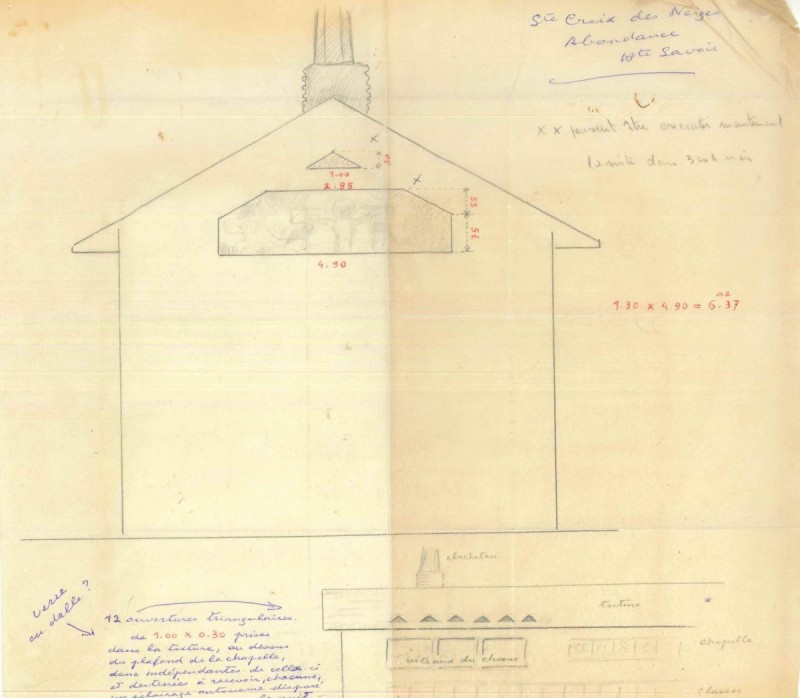 Ste Croix des Neiges
Abondance
Hte Savoie
x x peuvent être executés maintenant
la suite dans 3 ou 4 mois
x
50
1.00
x
2.85
55
75
4.90
1.30 x 4.90 = 6.37 m2
clocheton
verre
ou dalle ?
12 ouvertures triangulaires
de 1.00 x 0.30 prises
dans la toiture, au dessus
du plafond de la chapelle,
donc indépendantes de celle ci
et destinées à recevoir, chacune,
un éclairage autonome disposé
toiture
chapelle
vitraux du choeur
classes